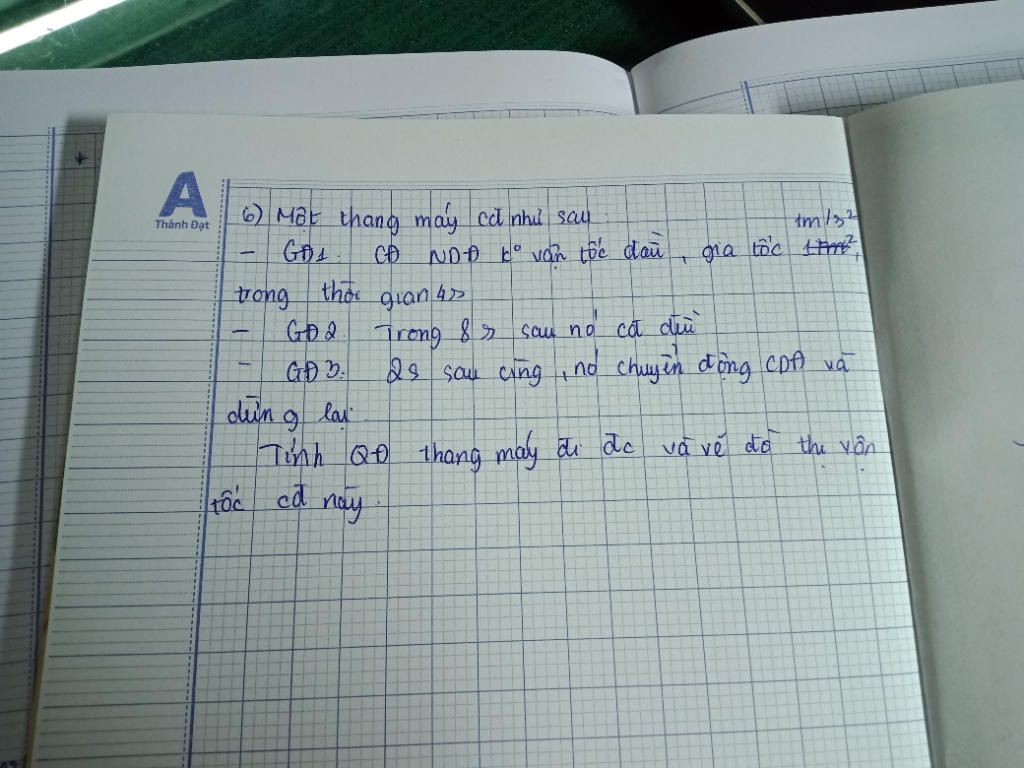 A
Thành Đạt
6) Một thang máy cđ như sau.
1m/s²
- GĐ1. CĐ NDĐ k° vận tốc đầu, gia tốc 1m²,
trong thời gian 4s
- GĐ2. Trong 8s sau nó cđ đều
- GĐ3. 2s sau cùng, nó chuyển động CDĐ và
dừng lại.
Tính QĐ thang máy đi đc và vẽ đồ thị vận
tốc cđ này.